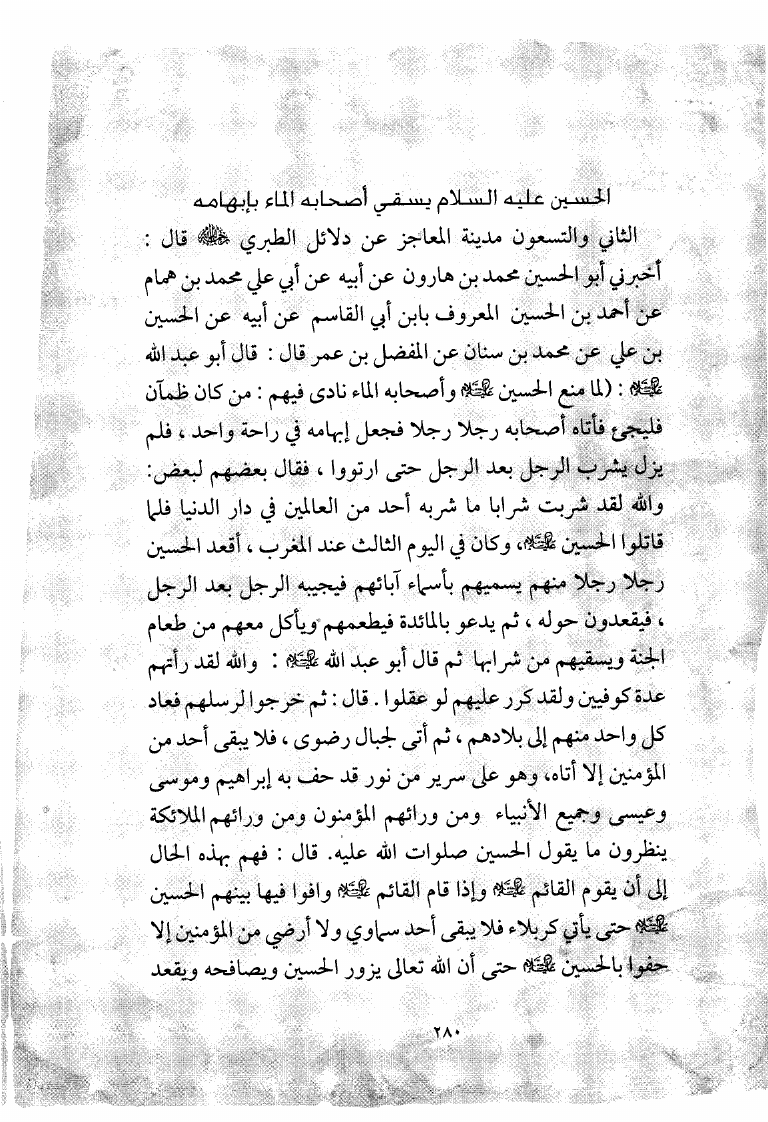 الحسين عليه السلام يسقي أصحابه الماء بإبهامه
الثاني والتسعون مدينة المعاجز عن دلائل الطبري قال :
أخبرني أبو الحسين محمد بن هارون عن أبيه عن أبي علي محمد بن همام
عن أحمد بن الحسين المعروف بابن أبي القاسم عن أبيه عن الحسين
بن علي عن محمد بن سنان عن المفضل بن عمر قال : قال أبو عبد الله
: (لما منع الحسين وأصحابه الماء نادى فيهم : من كان ظمآن
فليجئ فأتاه أصحابه رجلا رجلا فجعل إبهامه في راحة واحد ، فلم
يزل يشرب الرجل بعد الرجل حتى ارتووا ، فقال بعضهم لبعض:
والله لقد شربت شرابا ما شربه أحد من العالمين في دار الدنيا فلما
قاتلوا الحسين ، وكان في اليوم الثالث عند المغرب ، أقعد الحسين
رجلا رجلا منهم يسميهم بأسماء آبائهم فيجيبه الرجل بعد الرجل
، فيقعدون حوله ، ثم يدعو بالمائدة فيطعمهم ويأكل معهم من طعام
الجنة ويسقيهم من شرابها ثم قال أبو عبد الله : والله لقد رأتهم
عدة كوفيين ولقد كرر عليهم لو عقلوا . قال : ثم خرجوا لرسلهم فعاد
كل واحد منهم إلى بلادهم ، ثم أتى لجبال رضوى ، فلا يبقى أحد من
المؤمنين إلا أتاه، وهو على سرير من نور قد حف به إبراهيم وموسى
وعيسى وجميع الأنبياء ومن ورائهم المؤمنون ومن ورائهم الملائكة
ينظرون ما يقول الحسين صلوات الله عليه. قال : فهم بهذه الحال
إلى أن يقوم القائم وإذا قام القائم وافوا فيها بينهم الحسين
حتى يأتي كربلاء فلا يبقى أحد سماوي ولا أرضي من المؤمنين إلا
حفوا بالحسين حتى أن الله تعالى يزور الحسين ويصافحه ويقعد
٢٨٠